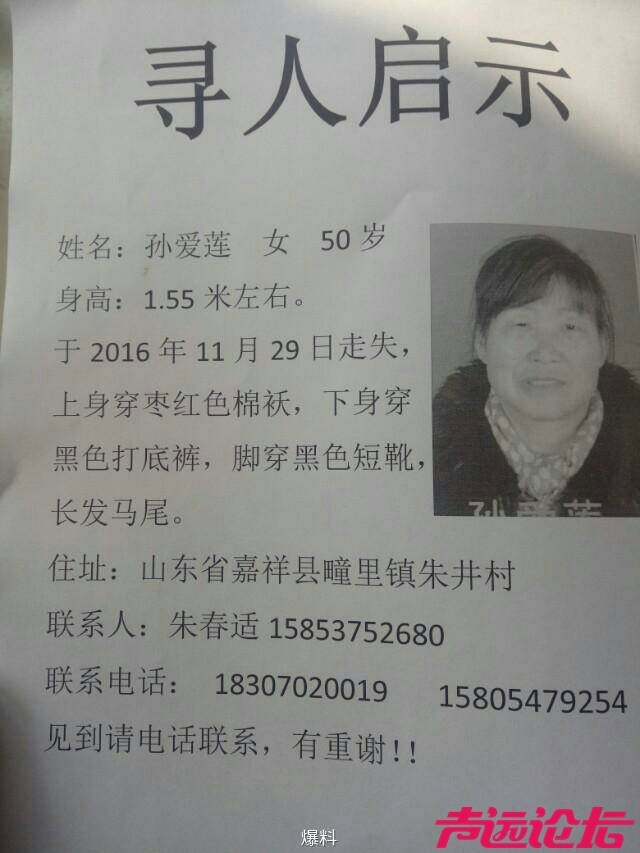 寻人启示
姓名：孙爱莲 女 50 岁
身高：1.55 米左右。
于 2016 年 11 月 29 日走失，
上身穿枣红色棉袄，下身穿
黑色打底裤，脚穿黑色短靴，
长发马尾。
孙爱莲
住址：山东省嘉祥县疃里镇朱井村
联系人：朱春适 15853752680
联系电话： 18307020019 15805479254
见到请电话联系，有重谢!!
声远论坛
爆料